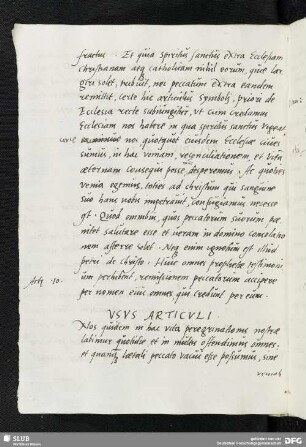 fructus. Et quia spiritus sanctus extra Ecclesiam
Christianam atq catholicam nihil eorum, quae lar
giri solet, tribuit, nec peccatum extra eandem
remittit, certe hic articulus Symboli, priori de
Ecclesia recte subiungitur, ut cum credamus
Ecclesiam nos habere in qua spiritus sanctus
nos quotquot eiusdem Ecclesiae ciues
sumus, in hac veniam, reconciliationem, et vitam
aeternam consequi posse, desperemus. At quoties
venia egemus, toties ad Christum qui sanguine
suo hanc nobis impetrauit, confugiamus necesse
est. Quod omnibus, quos peccatorum suorum poe
nitet salutare esse et ueram in domino consolatio
nem afferre solet. Neq enim ignotum est illud
petri de Christo. Huic omnes prophetae testimoni
um perhibent, remissionem peccatorum accipere
per nomen eius omnes qui credunt per eum.
Act. 10.
VSVS ARTICVLI.
Nos quidem in hac vita peregrinationis nostrae
labimur quotidie et in multis offendimus omnes,
et quamq letali peccato vacui esse possumus, sine
SLUB
Wir führen Wissen.
DFG